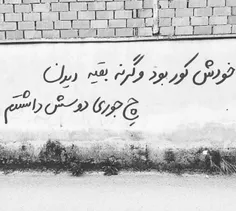 خودش کور بود وگرنه بقیه دیدن
چجوری دوسش داشتم